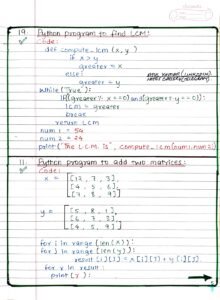 19. Python program to find LCM:
Code:
def compute_lcm (x, y)
if x > y
greater = x
else:
greater = y
while (True):
if((greater % x ==0) and (greater % y ==0)):
lcm = greater
break
return lcm
num 1 = 54
num 2 = 24
print ("The L.C.M. is", compute_lcm(num1, num2))
11. Python program to add two matrices:
Code:
x = [[12, 7, 3],
[4, 5, 6],
[7, 8, 9]]
y = [[5, 8, 1],
[6, 7, 3],
[4, 5, 9]]
for i in range (len(x)):
for j in range (len(y)):
result [i][j] = x [i][j] + y [i][j].
for r in result:
print (r):